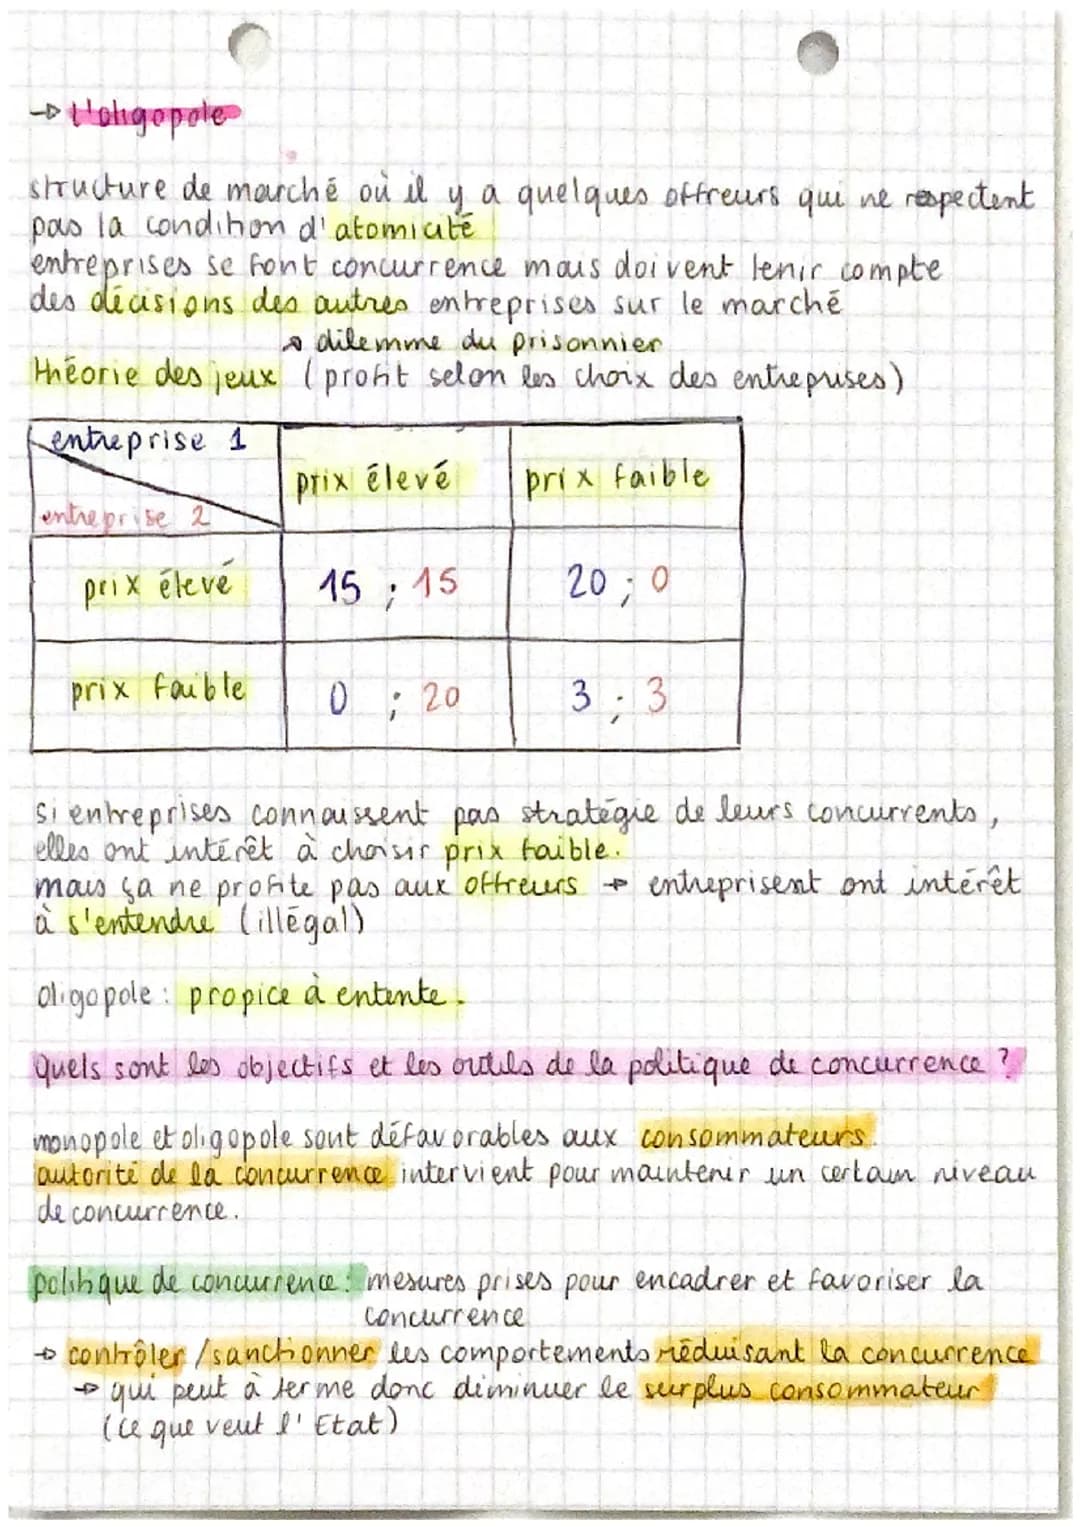 → L'oligopole
structure de marché où il y a quelques offreurs qui ne respectent
pas la condition d'atomicité
entreprises se font concurrence mais doivent tenir compte
des décisions des autres entreprises sur le marché
→ dilemme du prisonnier
théorie des jeux (profit selon les choix des entreprises)
entreprise 1
entreprise 2
prix élevé
prix faible
prix élevé
15 ; 15
20 ; 0
prix faible
0 ; 20
3 ; 3
si entreprises connaissent pas stratégie de leurs concurrents,
elles ont intérêt à choisir prix faible.
mais ça ne profite pas aux offreurs → entreprisent ont intérêt
à s'entendre (illégal)
oligopole : propice à entente.
Quels sont les objectifs et les outils de la politique de concurrence ?
monopole et oligopole sont défavorables aux consommateurs.
autorité de la concurrence intervient pour maintenir un certain niveau
de concurrence.
politique de concurrence : mesures prises pour encadrer et favoriser la
concurrence
→ contrôler / sanctionner les comportements réduisant la concurrence
→ qui peut à terme donc diminuer le surplus consommateur
(ce que veut l'Etat)